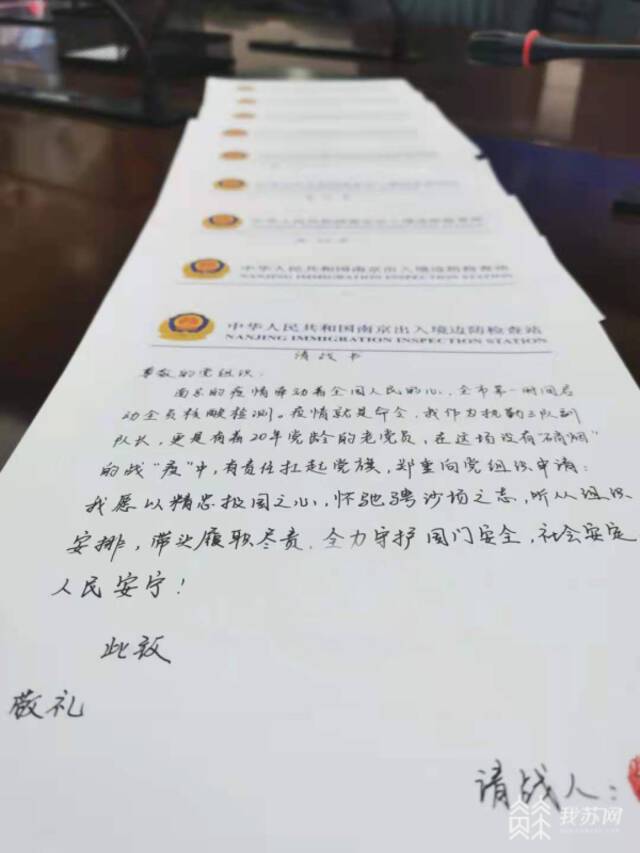 中华人民共和国南京出入境边防检查站
中华人民共和国南京出入境边防检查站
NANJING IMMIGRATION INSPECTION STATION
中华人民共和国南京出入境边防检查站
NANJING IMMIGRATION INSPECTION STATION
请战书
尊敬的党组织:
南京的疫情牵动着全国人民的心,全市第一时间启
动全员核酸检测。疫情就是命令,我作为执勤三队副
队长,更是有着20年党龄的老党员,在这场没有“硝烟”
的战“疫”中,有责任扛起党旗,郑重向党组织申请:
我愿以精忠报国之心,怀驰骋沙场之志,听从组织
安排,带头履职尽责,全力守护国门安全,社会安定,
人民安宁!
此致
敬礼
请战人:
我苏网